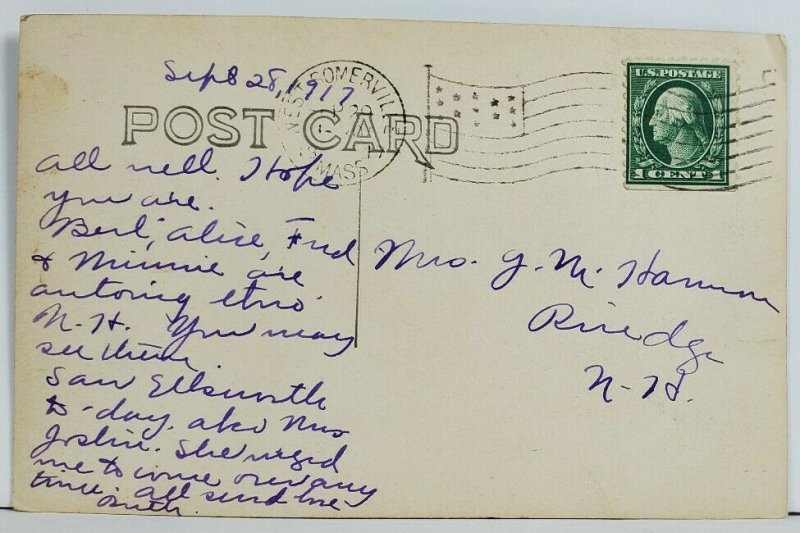 Sept 28, 1917
WEST SOMERVILLE
MASS
POST CARD
U.S. POSTAGE
1 CENT 1
All well. Hope
you are.
Bert, Alice, Fred
& Minnie are
autoing thro'
N.H. You may
see them.
Saw Ellsworth
to-day. also Mrs
Joslin. She urged
me to come over any
time. All send love
Ruth
Mrs. J. M. Hannon
Rindge
N-H.